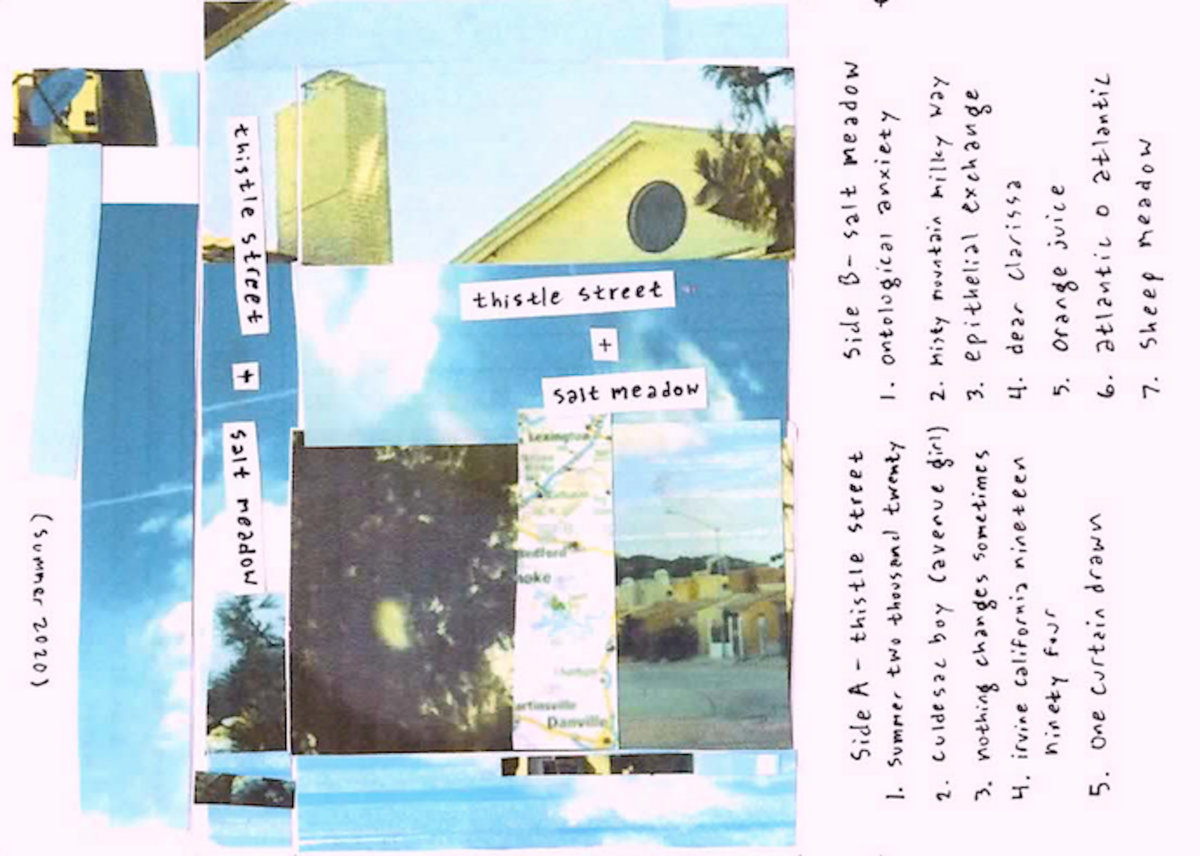 (summer 2020)
thistle street
+
salt meadow
thistle street
+
salt meadow
Lexington
Bedford
noke
artinsville
Danville
Side A - thistle street
1. summer two thousand twenty
2. culdesac boy (avenue girl)
3. nothing changes sometimes
4. irvine california nineteen
ninety four
5. one curtain drawn
Side B - salt meadow
1. ontological anxiety
2. misty mountain milky way
3. epithelial exchange
4. dear clarissa
5. orange juice
6. atlantic o atlantic
7. sheep meadow